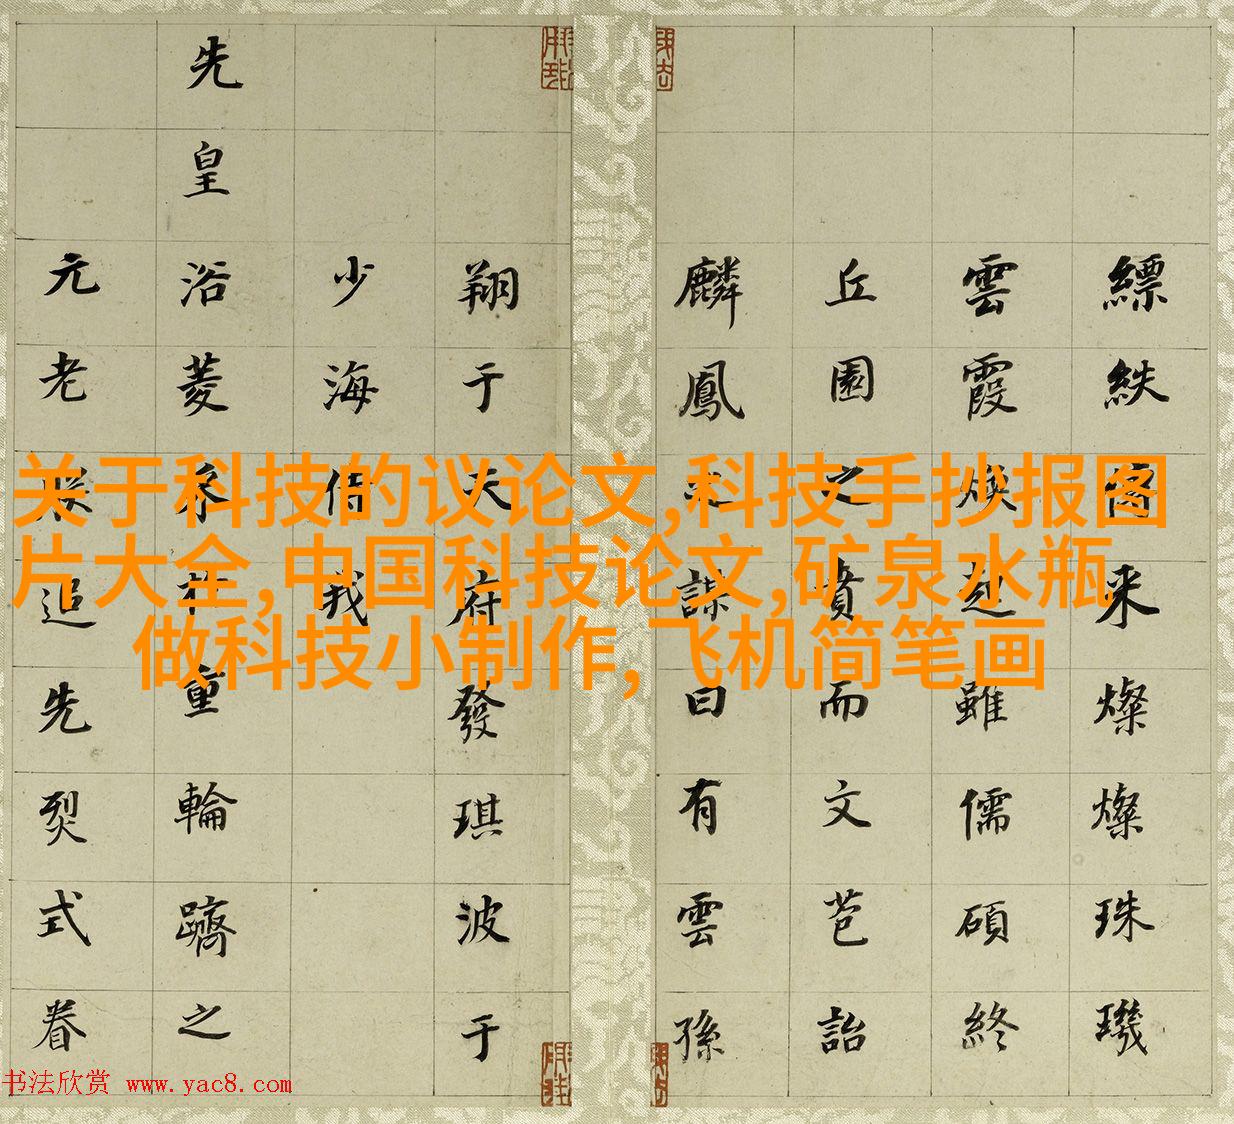 关于科技的议论文,科技手抄报图
片大全,中国科技论文,矿泉水瓶
做科技小制作,飞机简笔画
縹紩来燦燦珠璣
雲霞煥雖儒碩終
丘園之賁而文苞詒
麟鳳之謀曰有雲孫
翔于天府發琪波于
少海我
先皇浴菱重輪躋之
元老朕追先烈式眷
书法欣赏 www.yac8.com